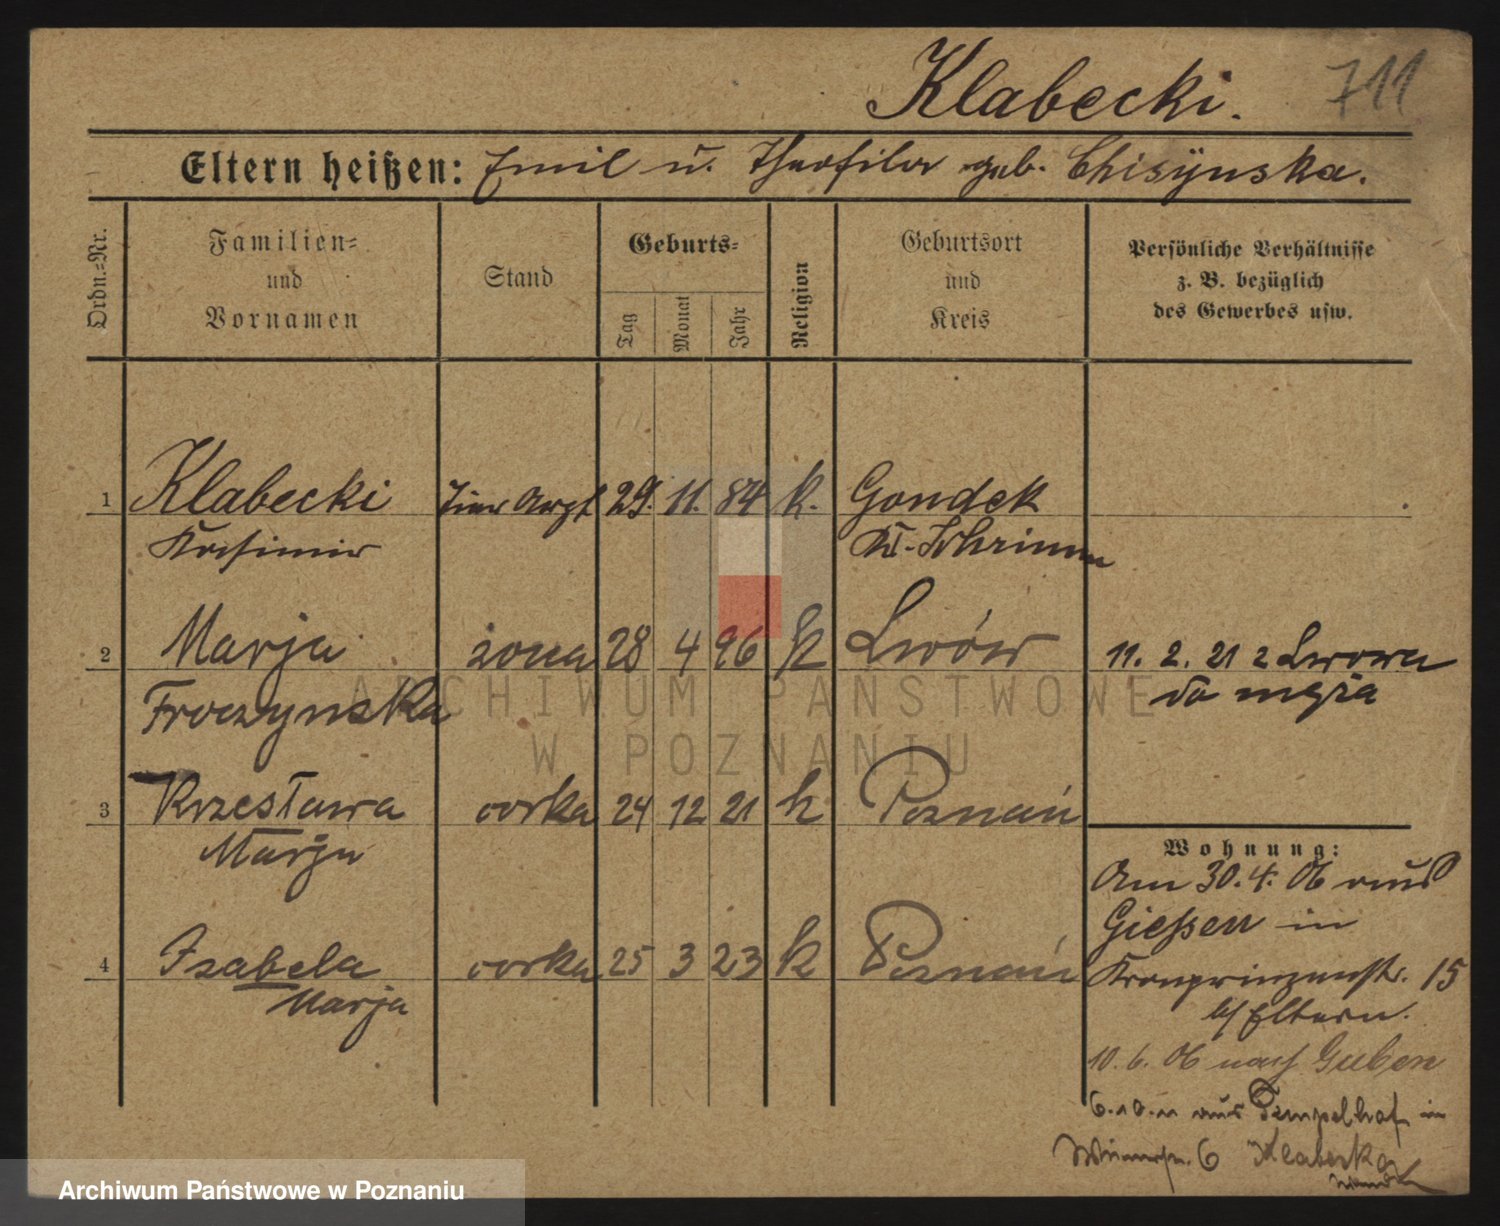 Klabecki. 711
Eltern heißen: Emil u. Theofila geb. Chisÿnska.
Ordn.=Nr.
Familien=
und
Vornamen
Stand
Geburts=
Tag Monat Jahr
Religion
Geburtsort
und
Kreis
Persönliche Verhältnisse
z. B. bezüglich
des Gewerbes usw.
1 Klabecki Tier Arzt 29. 11. 84 k. Gondek
Kasimir Kr. Schrimm
2 Marja żona 28 4 96 k Lwów 11. 2. 21 z Lwowa
Froczynska do męża
3 Krzesława córka 24 12 21 k Poznań
Marja
4 Izabela córka 25 3 23 k Poznań
Marja
Wohnung:
Am 30. 4. 06 aus
Gießen in
Kronprinzenstr. 15
b/ Eltern.
10. 6. 06 nach Guben
6. 10. 11 aus Tempelhof in
6 Klabecka
ARCHIWUM PAŃSTWOWE
W POZNANIU
Archiwum Państwowe w Poznaniu